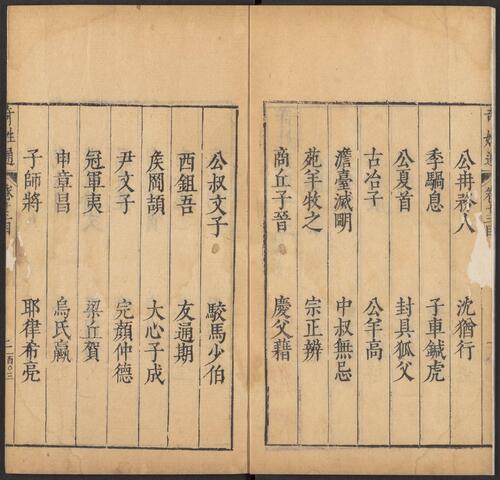 公冉務人
沈猶行
季騧息
子車鍼虎
公夏首
封具狐父
古冶子
公羊高
澹臺滅明
中叔無忌
苑羊牧之
宗正辨
商丘子晉
慶父藉
公叔文子
駮馬少伯
西鉏吾
友通期
矦岡頡
大心子成
尹文子
完顏仲德
冠軍夷
梁丘賀
申章昌
烏氏臝
子師將
耶律希亮
奇姓通